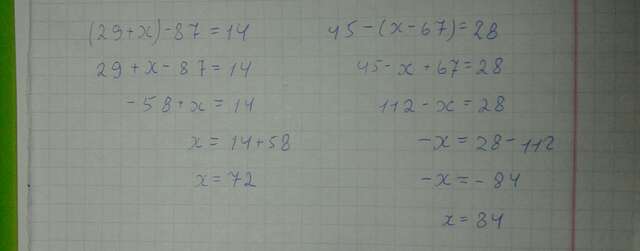 (29+x)-87=14
29+x-87=14
-58+x=14
x=14+58
x=72
45-(x-67)=28
45-x+67=28
112-x=28
-x=28-112
-x=-84
x=84